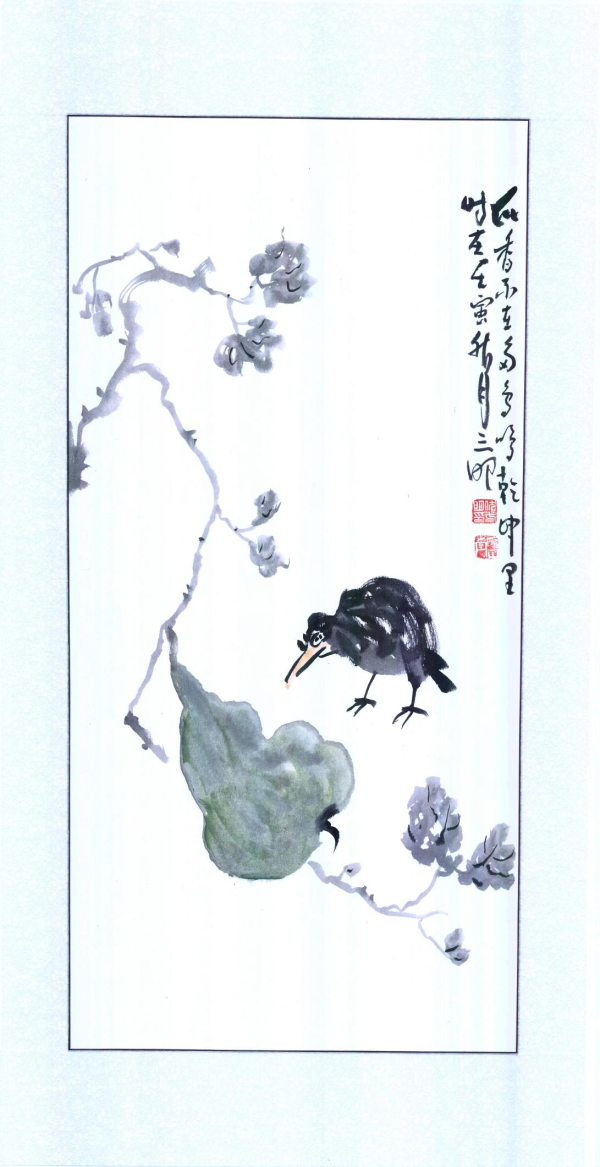 香不在多鸟鸣乾坤里
时在壬寅秋月三明